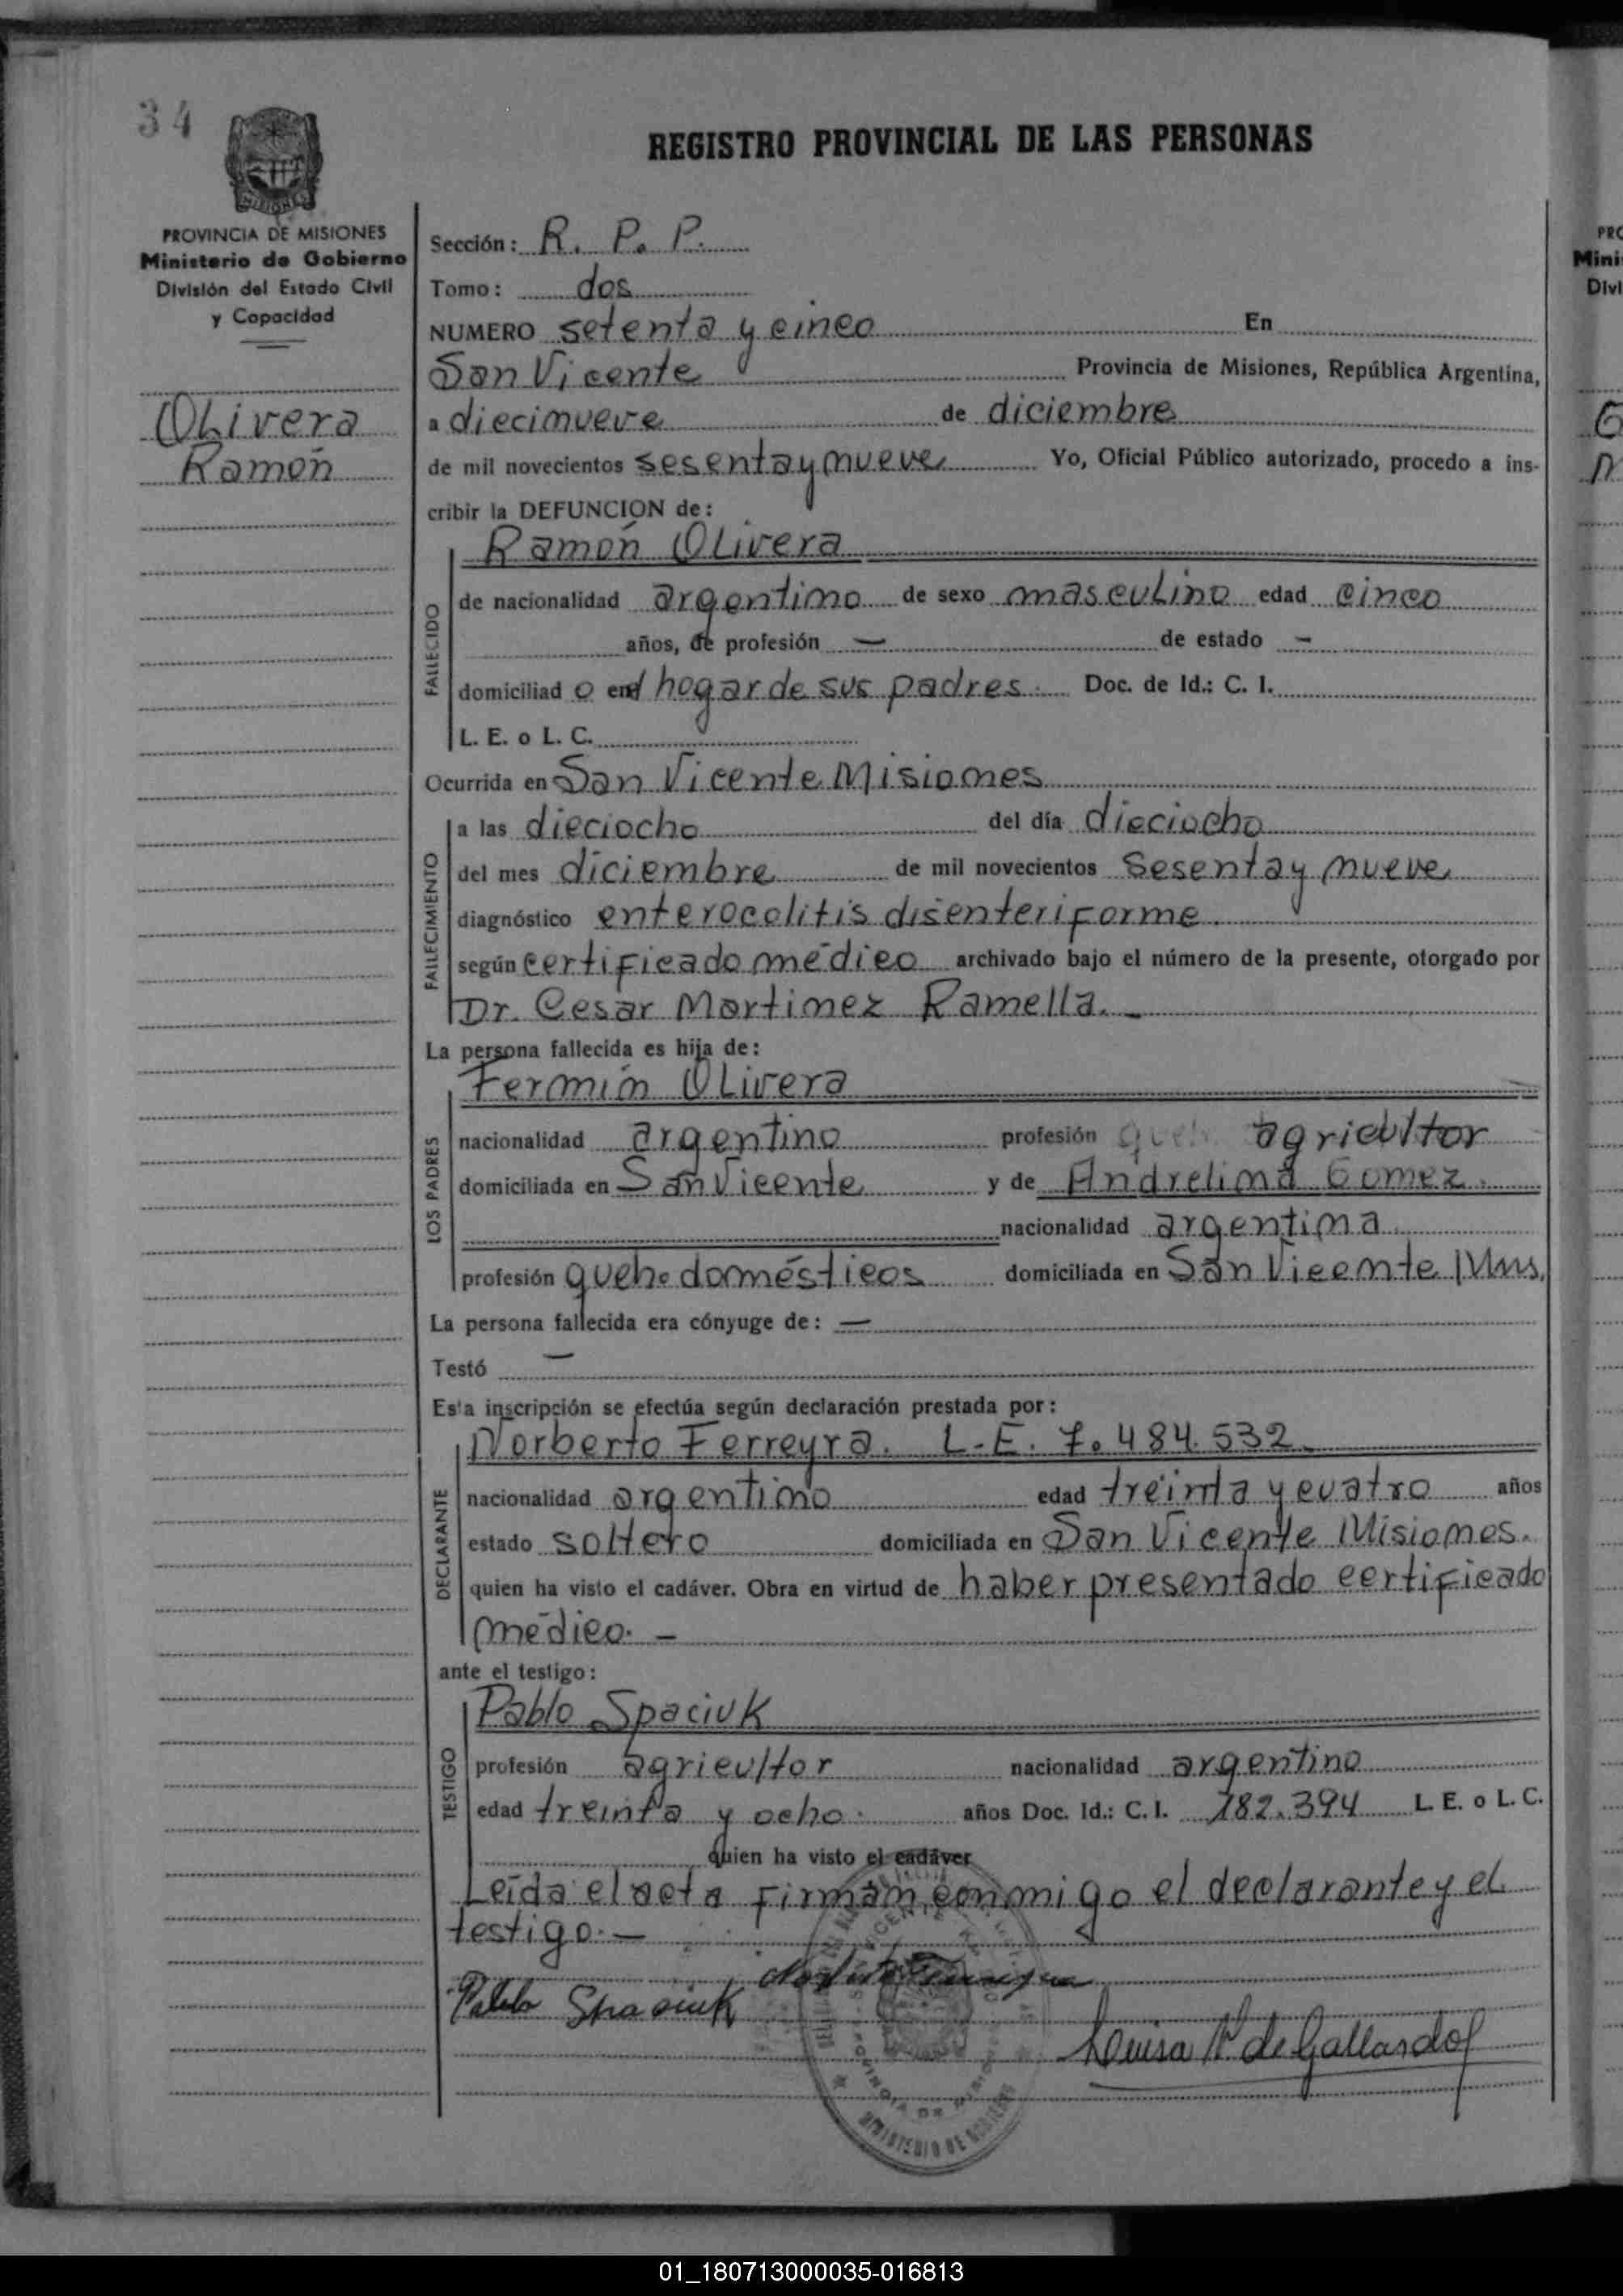 34
REGISTRO PROVINCIAL DE LAS PERSONAS
MISIONES
PROVINCIA DE MISIONES
Ministerio de Gobierno
División del Estado Civil
y Capacidad
Olivera
Ramón
Sección: R. P. P.
Tomo: dos
NUMERO setenta y cinco En
San Vicente Provincia de Misiones, República Argentina,
a diecinueve de diciembre
de mil novecientos sesenta y nueve Yo, Oficial Público autorizado, procedo a ins-
cribir la DEFUNCION de:
Ramón Olivera
FALLECIDO
de nacionalidad argentino de sexo masculino edad cinco
años, de profesión — de estado —
domiciliad o en el hogar de sus padres. Doc. de Id.: C. I.
L. E. o L. C.
Ocurrida en San Vicente Misiones
FALLECIMIENTO
a las dieciocho del día dieciocho
del mes diciembre de mil novecientos sesenta y nueve
diagnóstico enterocolitis disenteriforme.
según certificado médico archivado bajo el número de la presente, otorgado por
Dr. Cesar Martinez Ramella. —
La persona fallecida es hija de:
Fermín Olivera
LOS PADRES
nacionalidad argentino profesión agricultor
domiciliada en San Vicente y de Andrelina Gomez.
nacionalidad argentina
profesión queh. domésticos domiciliada en San Vicente Mnes.
La persona fallecida era cónyuge de: —
Testó —
Esta inscripción se efectúa según declaración prestada por:
Norberto Ferreyra. L.E. 7.484.532.
DECLARANTE
nacionalidad argentino edad treinta y cuatro años
estado soltero domiciliada en San Vicente Misiones.
quien ha visto el cadáver. Obra en virtud de haber presentado certificado
médico. —
ante el testigo:
Pablo Spaciuk
TESTIGO
profesión agricultor nacionalidad argentino
edad treinta y ocho. años Doc. Id.: C. I. 182.394 L. E. o L. C.
quien ha visto el cadáver
Leída el acta firman conmigo el declarante y el
testigo. —
Pablo Spaciuk
Norberto Ferreyra
Luisa de Gallardo
MINISTERIO DE GOBIERNO
01_180713000035-016813